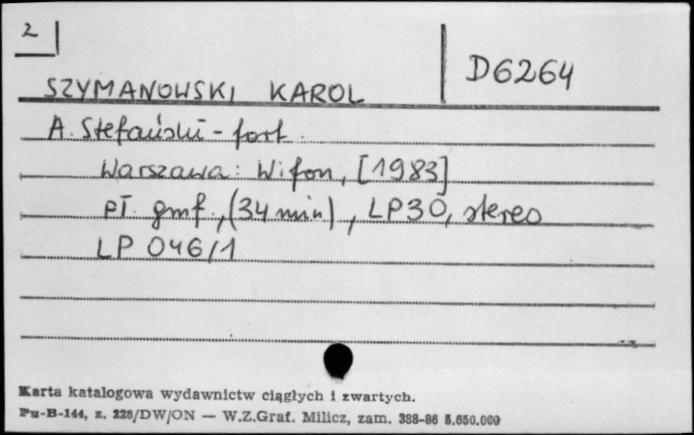 2
D6264
SZYMANOWSKI KAROL
A. Stefański - fort.
Warszawa: Wifon, [1983]
pł. gmf., (34 min), LP30, stereo
LP 046/1
Karta katalogowa wydawnictw ciągłych i zwartych.
Pu-B-144, z. 228/DW/ON — W.Z.Graf. Milicz, zam. 388-86 5.650.000